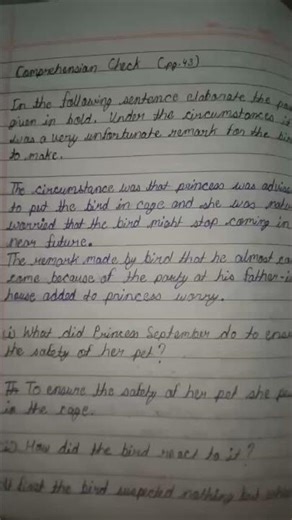 Comprehension Check (pg.43)
In the following sentence elaborate the pa
given in bold. Under the circumstances it
was a very unfortunate remark for the bir
to make.
The circumstance was that princess was advise
to put the bird in cage and she was natur
worried that the bird might stop coming in
near future.
The remark made by bird that he almost
come because of the party at his father-i
house added to princess worry.
i) What did Princess September do to ensu
the safety of her pet?
To ensure the safety of her pet she pu
in the cage.
How did the bird react to it?
first the bird suspected nothing but